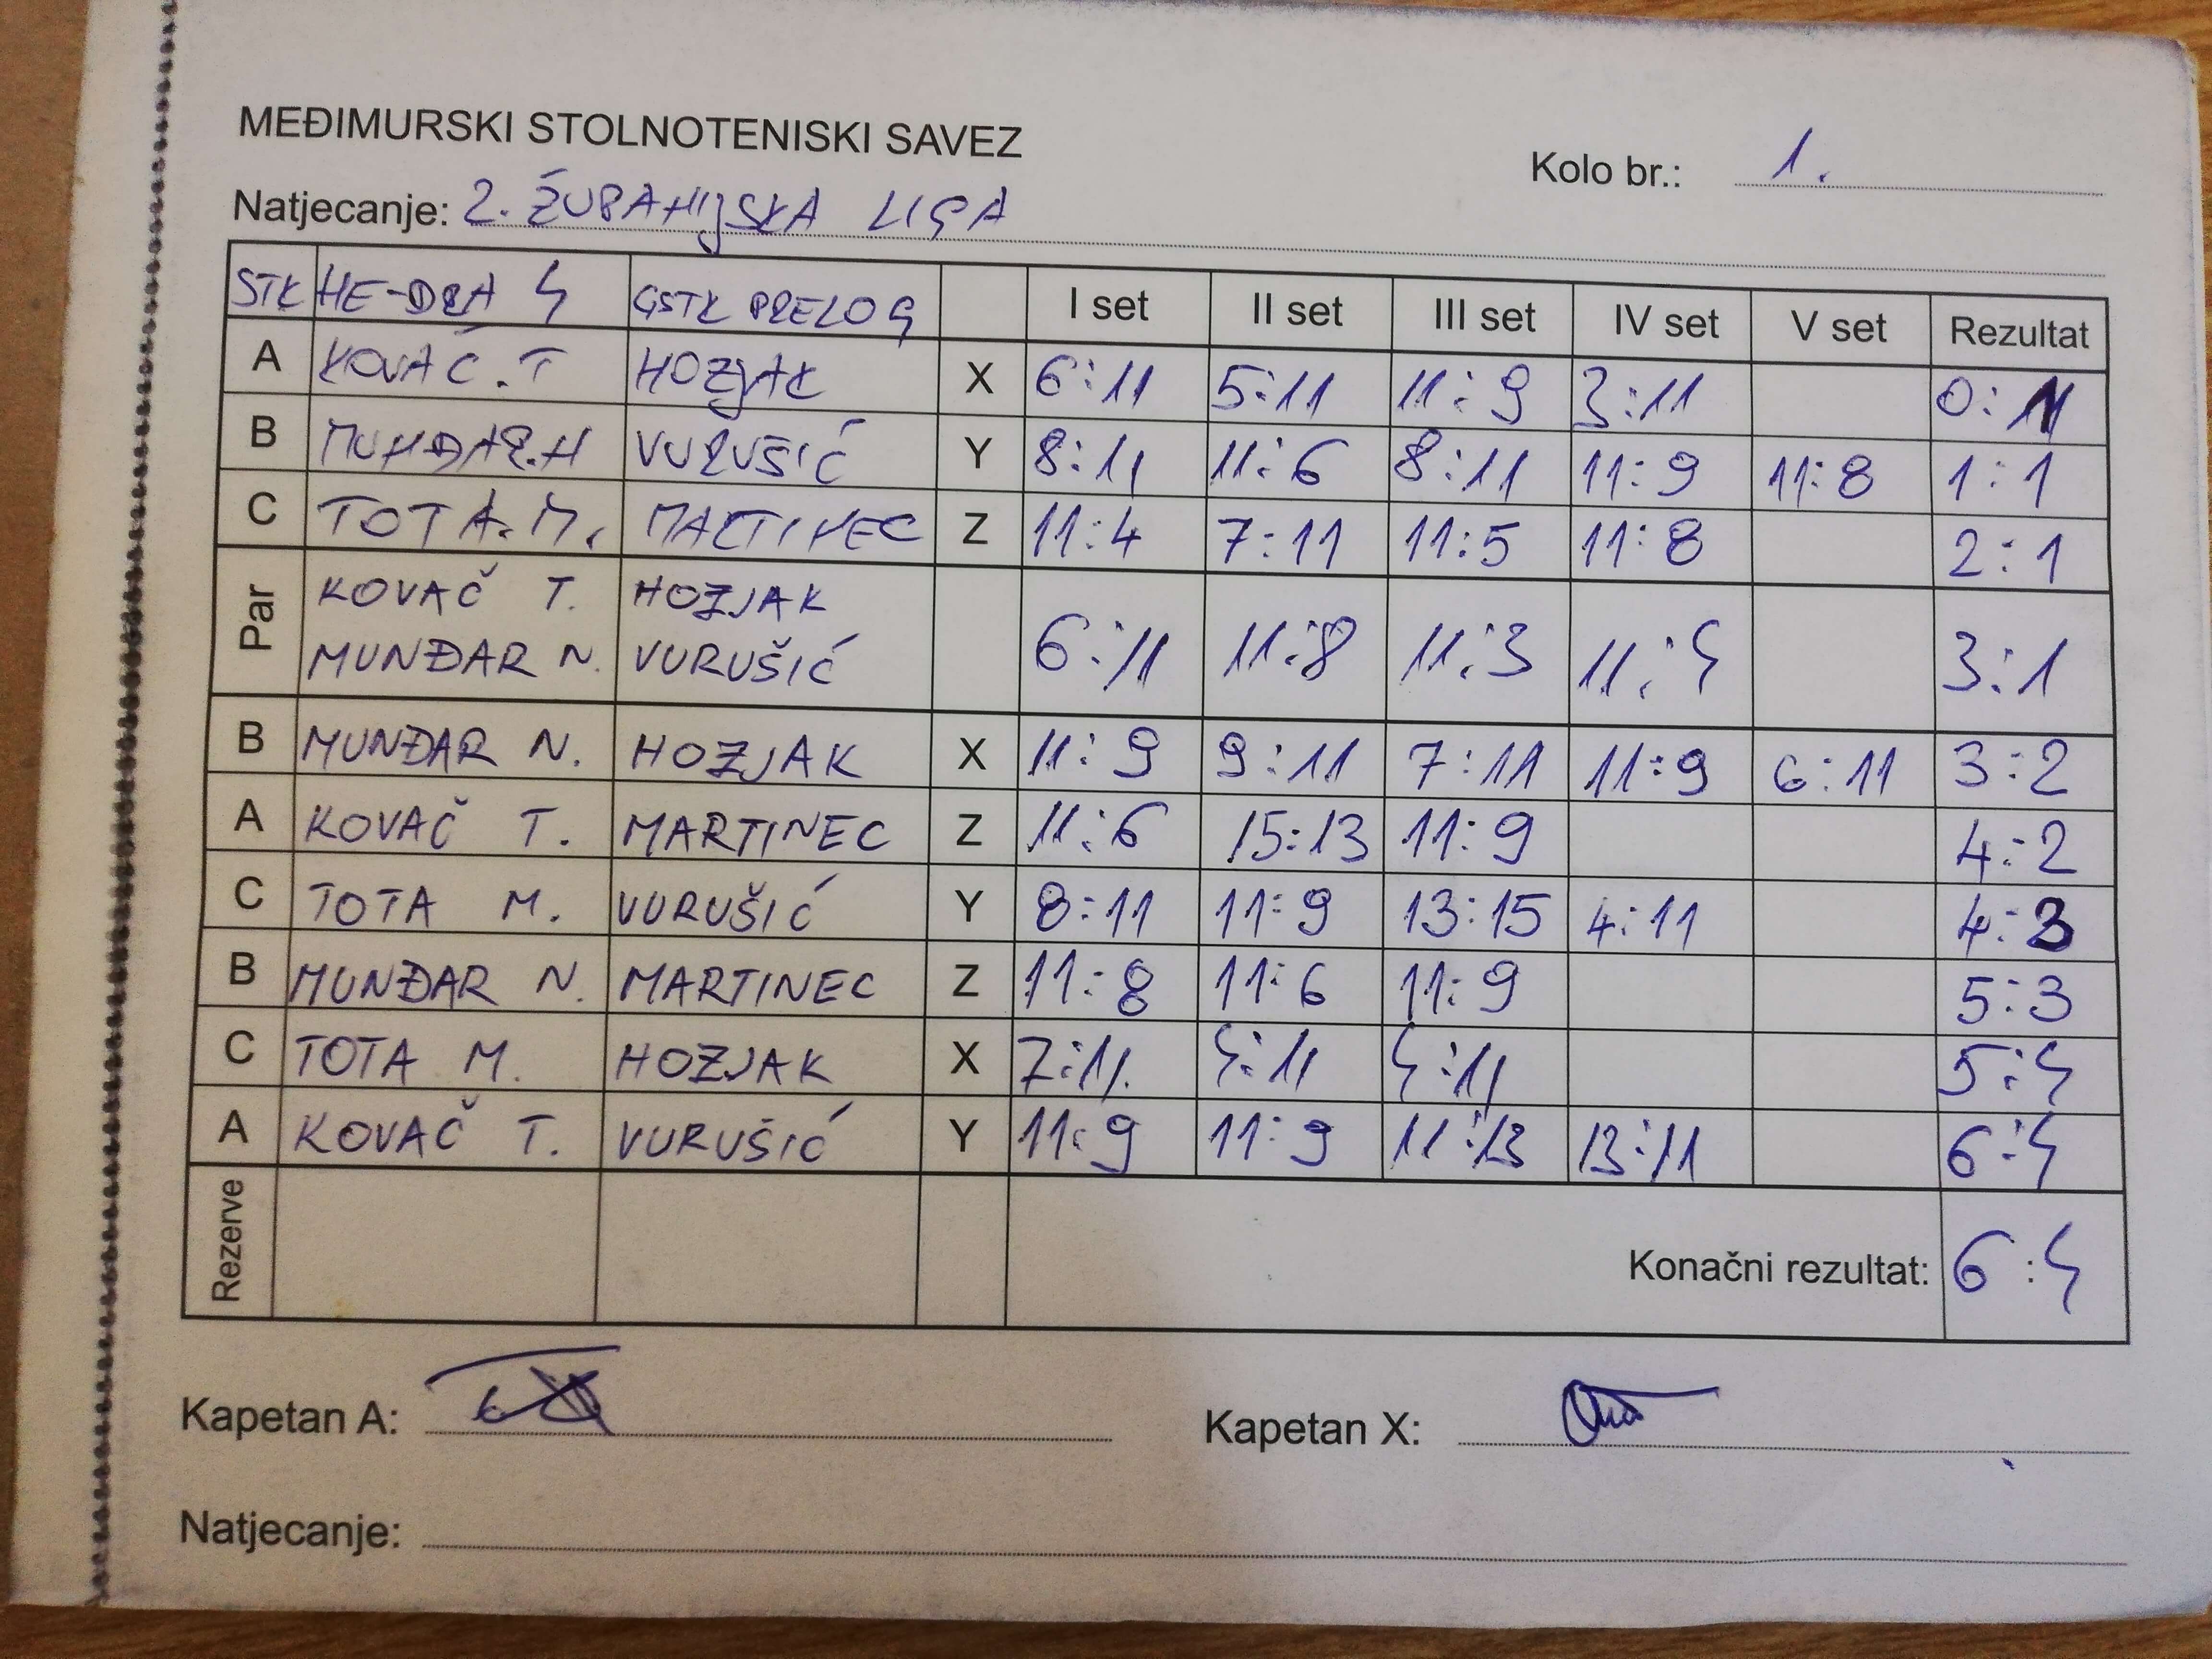 MEĐIMURSKI STOLNOTENISKI SAVEZ
Kolo br.: 1.
Natjecanje: 2. ŽUPANIJSKA LIGA
STK NE-ĐRA 4 GSTK PRELOG I set II set III set IV set V set Rezultat
A KOVAČ.T HOZJAK X 6:11 5:11 11:9 3:11 0:1
B MUNĐAR.N VURUŠIĆ Y 8:11 11:6 8:11 11:9 11:8 1:1
C TOTA.M. MARTINEC Z 11:4 7:11 11:5 11:8 2:1
Par KOVAČ T. HOZJAK
MUNĐAR N. VURUŠIĆ 6:11 11:8 11:3 11:4 3:1
B MUNĐAR N. HOZJAK X 11:9 9:11 7:11 11:9 6:11 3:2
A KOVAČ T. MARTINEC Z 11:6 15:13 11:9 4:2
C TOTA M. VURUŠIĆ Y 8:11 11:9 13:15 4:11 4:3
B MUNĐAR N. MARTINEC Z 11:8 11:6 11:9 5:3
C TOTA M. HOZJAK X 7:11 4:11 4:11 5:4
A KOVAČ T. VURUŠIĆ Y 11:9 11:9 11:13 13:11 6:4
Rezerve Konačni rezultat: 6:4
Kapetan A: Kapetan X:
Natjecanje: